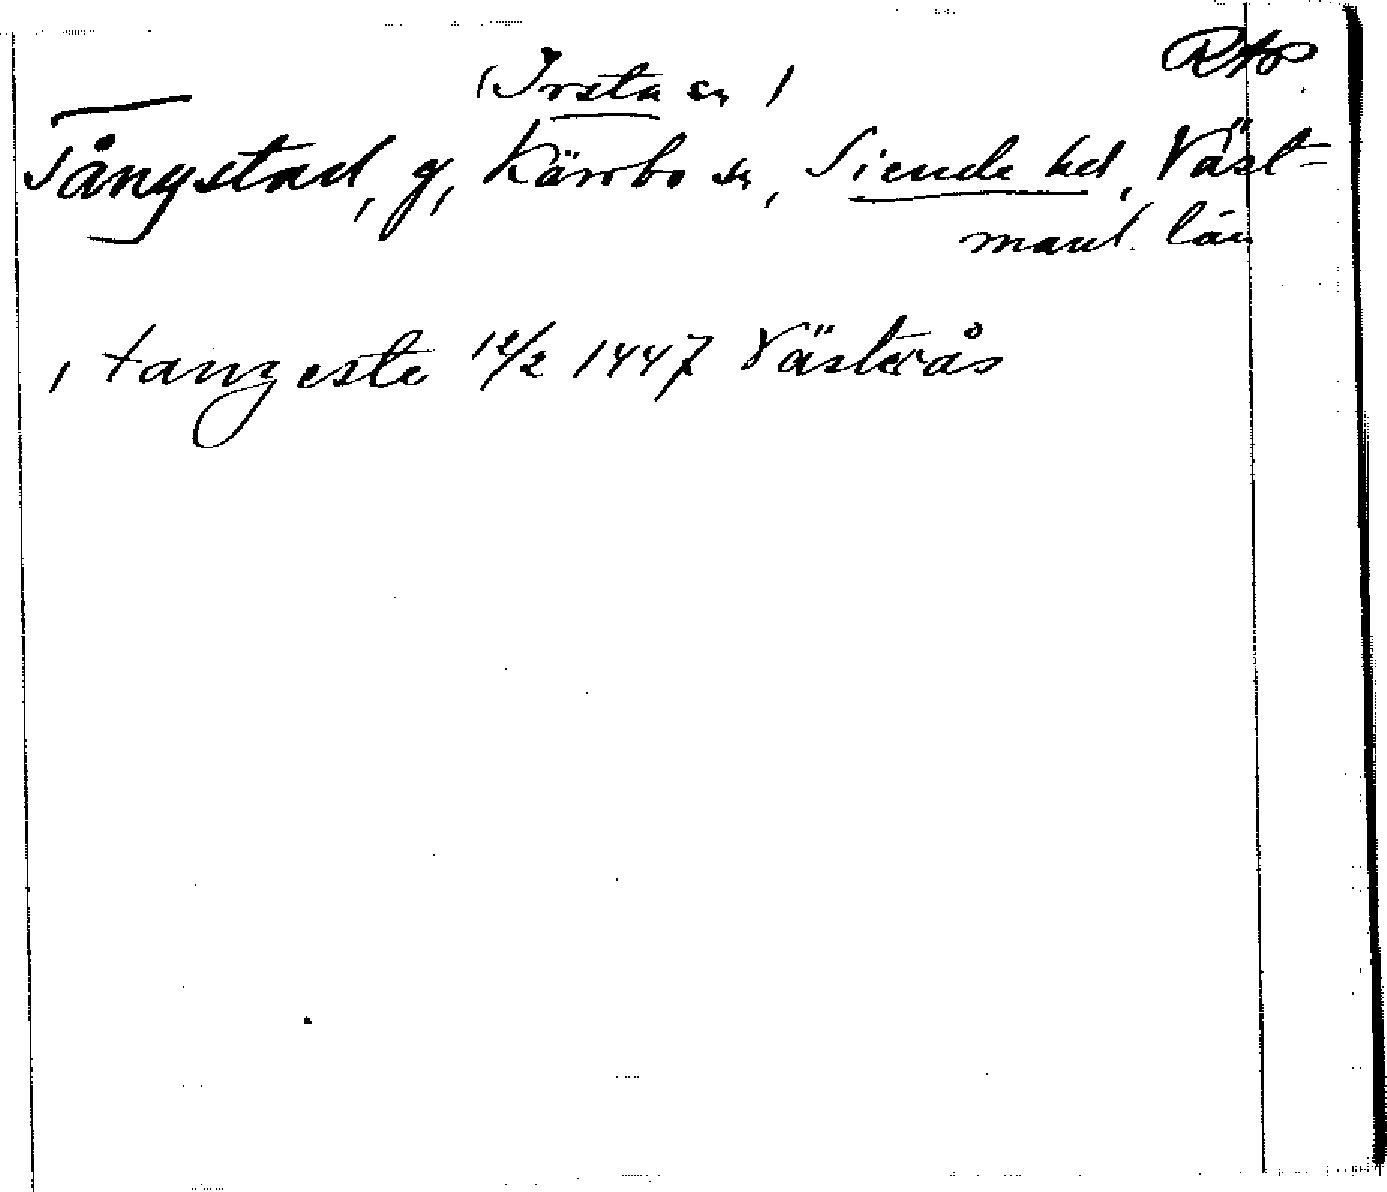 RAp
(Irsta sn)
Tångstad, g, Kärrbo sn, Siende hd, Väst-
manl. län
, tangeste 12/2 1447 Västerås